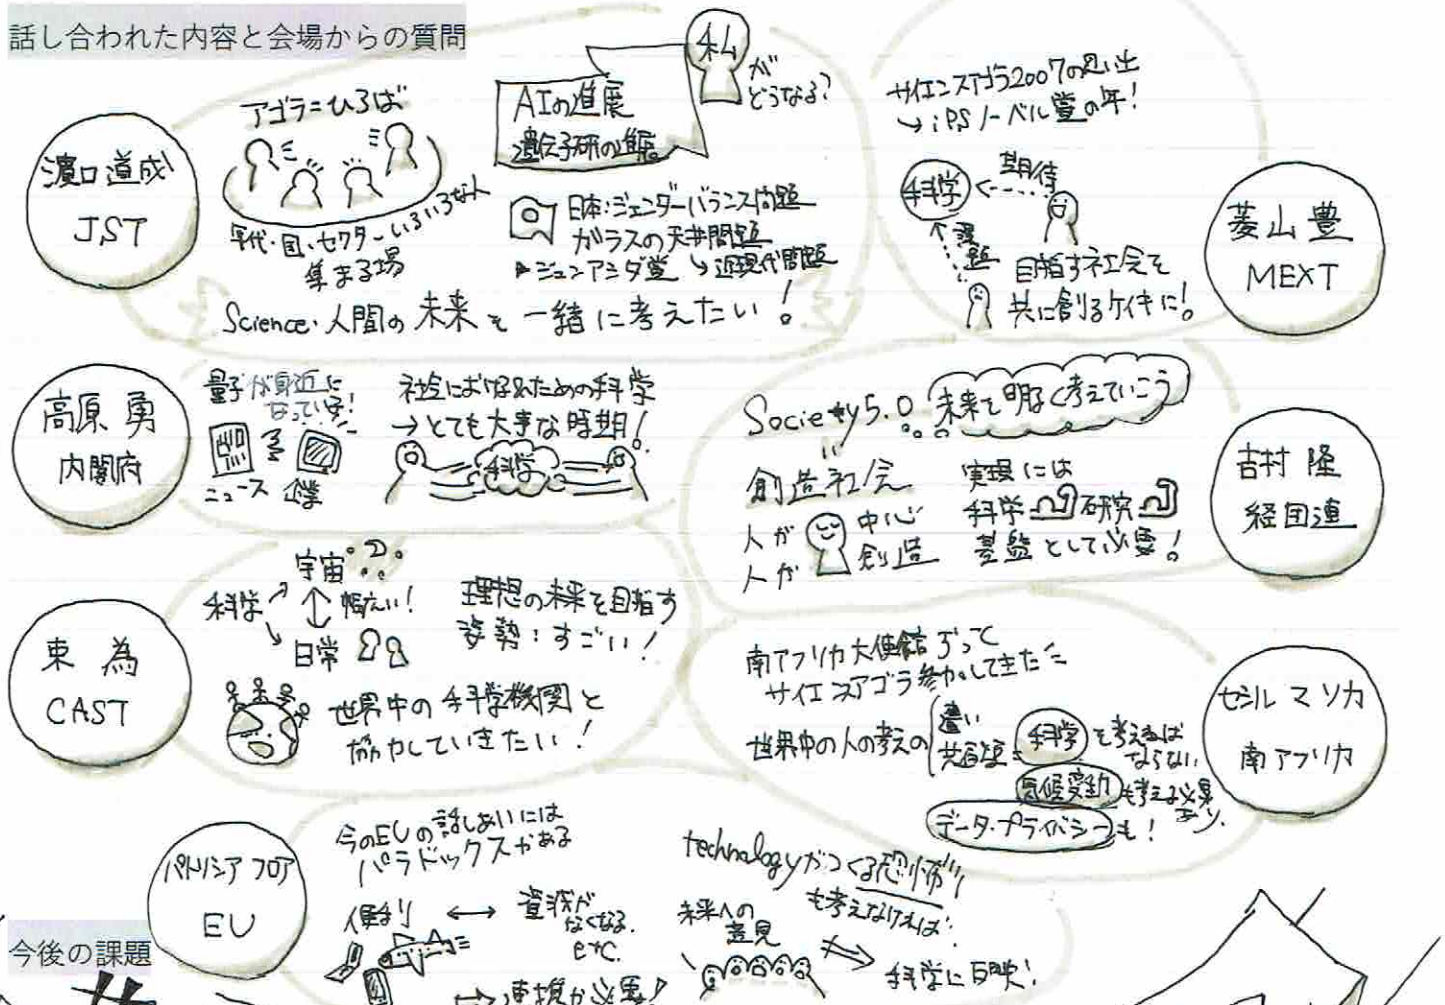 話し合われた内容と会場からの質問
濵口道成
JST
アゴラ=ひろば
年代・国・セクターいろいろな人
集まる場
AIの進展
遺伝子研の進展
私
が
どうなる?
日本:ジェンダーバランス問題
ガラスの天井問題
ジュンアシダ賞 ↳ 近現代問題
Science・人間の未来を一緒に考えたい!
サイエンスアゴラ2007の思い出
↳ iPSノーベル賞の年!
科学
期待
課題
目指す社会を
共に創るケイキに!
菱山 豊
MEXT
高原 勇
内閣府
量子が身近に
なっている!
ニュース 企業
社会における、ための科学
→とても大事な時期!
科学
Society5.0
未来を明るく考えていこう
創造社会
人が 中心
人が 創造
実現には
科学 研究
基盤として必要!
吉村 隆
経団連
東 為
CAST
宇宙
科学 幅広い!
日常
理想の未来を目指す
姿勢:すごい!
世界中の科学機関と
協力していきたい!
南アフリカ大使館ずっと
サイエンスアゴラ参加してきた
世界中の人の考えの
違い
共有点=
科学
を考えねば
ならない
気候変動
も考える必要
あり。
データ・プライバシーも!
セシル マソカ
南アフリカ
パトリシア フロア
EU
今のEUの話しあいには
パラドックスがある
便利 ↔ 資源が
なくなる
etc.
technologyがつくる恐怖
も考えなければ!
未来への
意見
科学に反映!
今後の課題
が必要!